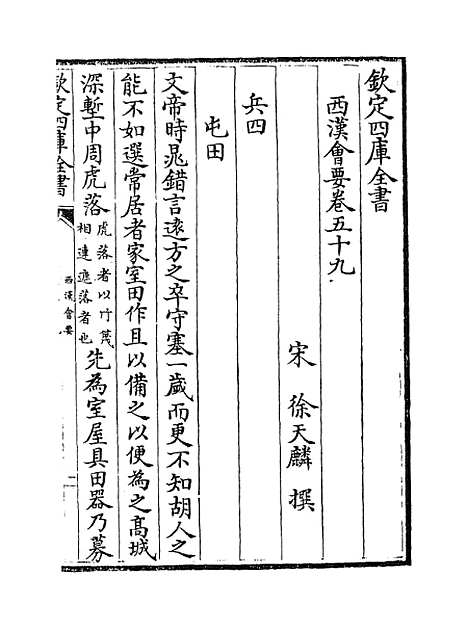 欽定四庫全書
西漢會要卷五十九
宋 徐天麟 撰
兵四
屯田
文帝時晁錯言遠方之卒守塞一歲而更不知胡人之
能不如選常居者家室田作且以備之以便為之髙城
深塹中周虎落虎落者以竹篾相連遮落者也先為室屋具田器乃募
欽定四庫全書
西漢會要